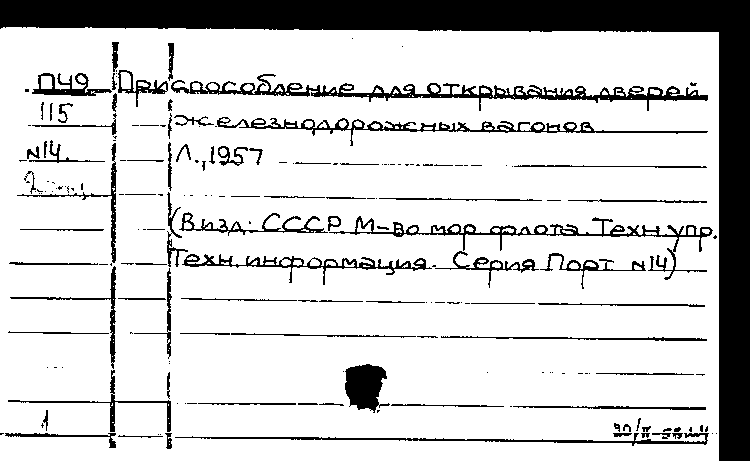 П49 Приспособление для открывания дверей
115 железнодорожных вагонов
N14. Л., 1957
(В изд: СССР. М-во мор флота. Техн упр.
Техн. информация. Серия Порт N14)
1